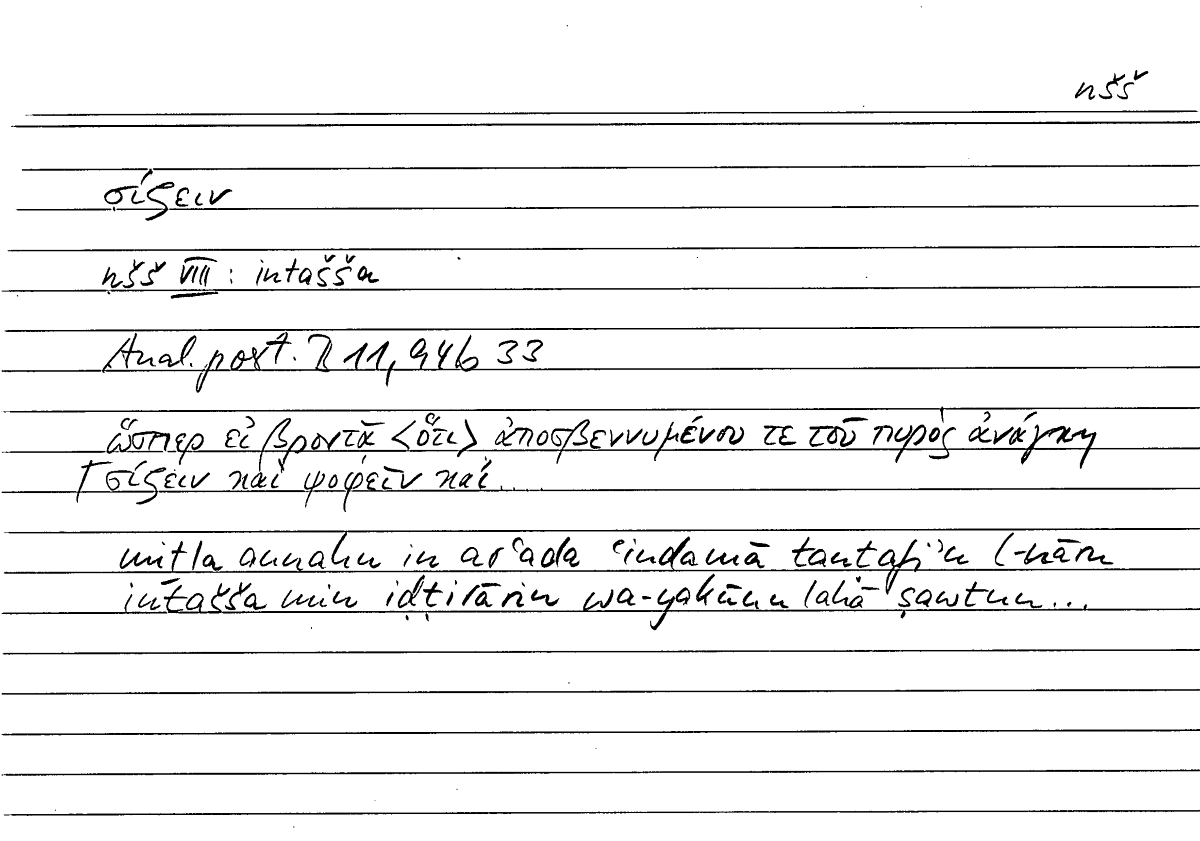 nšš
σίζειν
nšš VIII : intašša
Anal. post. B 11, 94b 33
ὥσπερ εἰ βροντᾷ <ὅτι> ἀποσβεννυμένου τε τοῦ πυρὸς ἀνάγκη
Γσίζειν καὶ ψοφεῖν καὶ...
mitla annahu in arʿada ʿindamā tantafiʾu l-nāru
intašša min iḍṭirārin wa-yakūnu lahā ṣawtun...